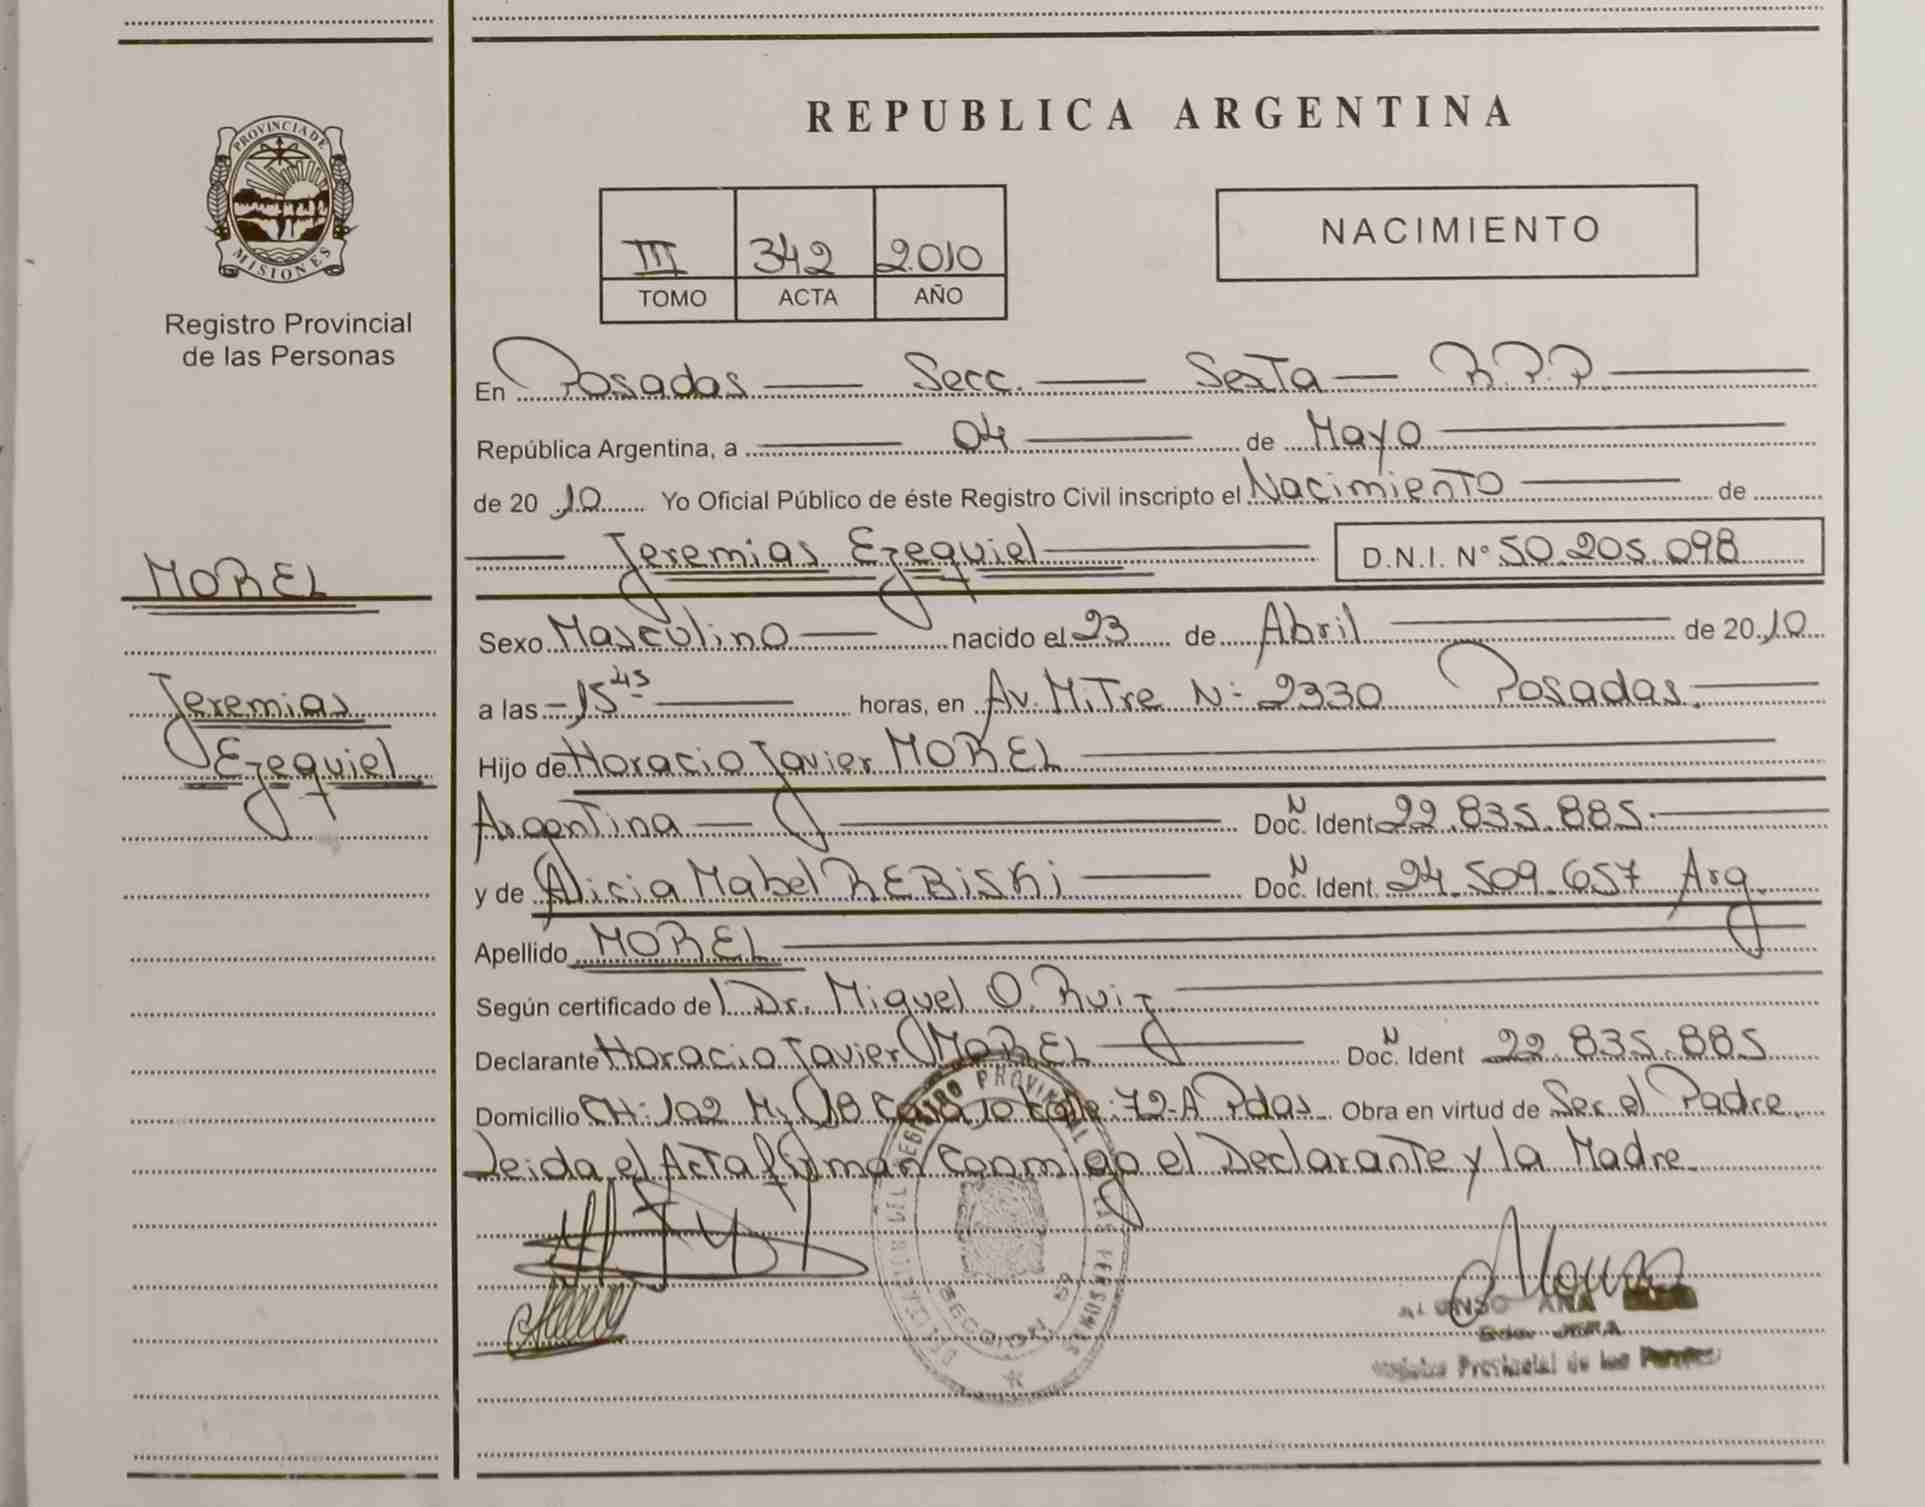 PROVINCIA DE
MISIONES
Registro Provincial
de las Personas
MOREL
Jeremias
Ezequiel
REPUBLICA ARGENTINA
III 342 2.010
TOMO ACTA AÑO
NACIMIENTO
En Posadas Secc. Sexta R.P.P.
República Argentina, a 04 de Mayo
de 20 10 Yo Oficial Público de éste Registro Civil inscripto el Nacimiento de
Jeremias Ezequiel D.N.I. N° 50.205.098
Sexo Masculino nacido el 23 de Abril de 20 10
a las 15 45 horas, en Av. Mitre N° 2330 Posadas.
Hijo de Horacio Javier MOREL
Argentina N Doc. Ident. 22.835.885.
y de Alicia Mabel REBISKI N Doc. Ident. 24.509.657 Arg.
Apellido MOREL
Según certificado del Dr. Miguel O. Ruiz
Declarante Horacio Javier MOREL N Doc. Ident 22.835.885
Domicilio CH: 102 M, 18 Casa 10 Calle 72-A Pdas. Obra en virtud de Ser el Padre.
Leida el Acta firman conmigo el Declarante y la Madre
REGISTRO PROVINCIAL DE LAS PERSONAS
SECCION 6a
ALONSO ANA
Registro Provincial de las Personas